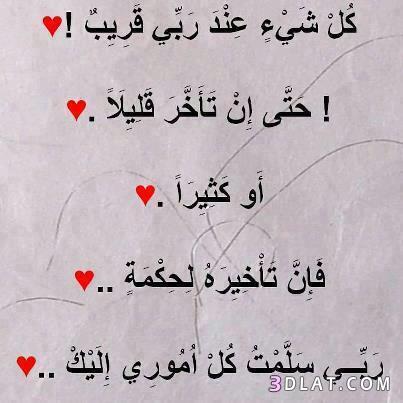 كُلْ شَيْءٍ عِنْدَ رَبِّي قَرِيبٌ !♥
! حَتَّى إِنْ تَأَخَّرَ قَلِيِلَاً .♥
أَو كَثِيِرَاً .♥
فَإِنَّ تَأْخِيِرَهُ لِحِكْمَةٍ ..♥
رَبِّـــي سَلَّمْتُ كُلْ اُمُورِي إِلَيْكْ ..♥
3DLAT.COM